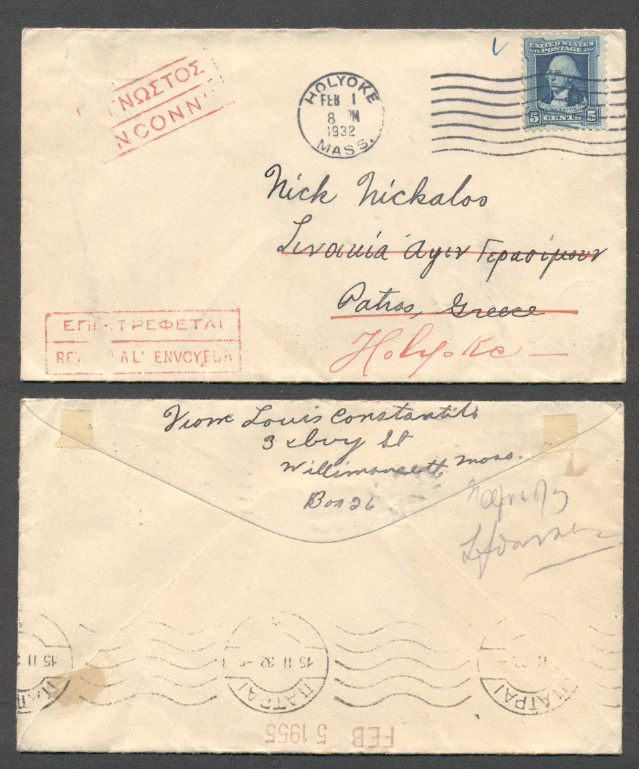 ΓΝΩΣΤΟΣ
NCONN
HOLYOKE
FEB 1
8 PM
1932
MASS.
UNITED STATES
POSTAGE
5 CENTS 5
Nick Nickalos
Συνοικία Αγιυ Γερασίμου
Patros, Greece
Holyoke —
ΕΠΙΣΤΡΕΦΕΤΑΙ
RE A L' ENVOYEUR
From Louis Constantilo
3 St
Willimansett Mass.
Box 26
15 II 32
ΠΑΤΡΑΙ
15 II 32 -
ΠΑΤΡΑΙ
ΠΑΤΡΑΙ
FEB 5 1955